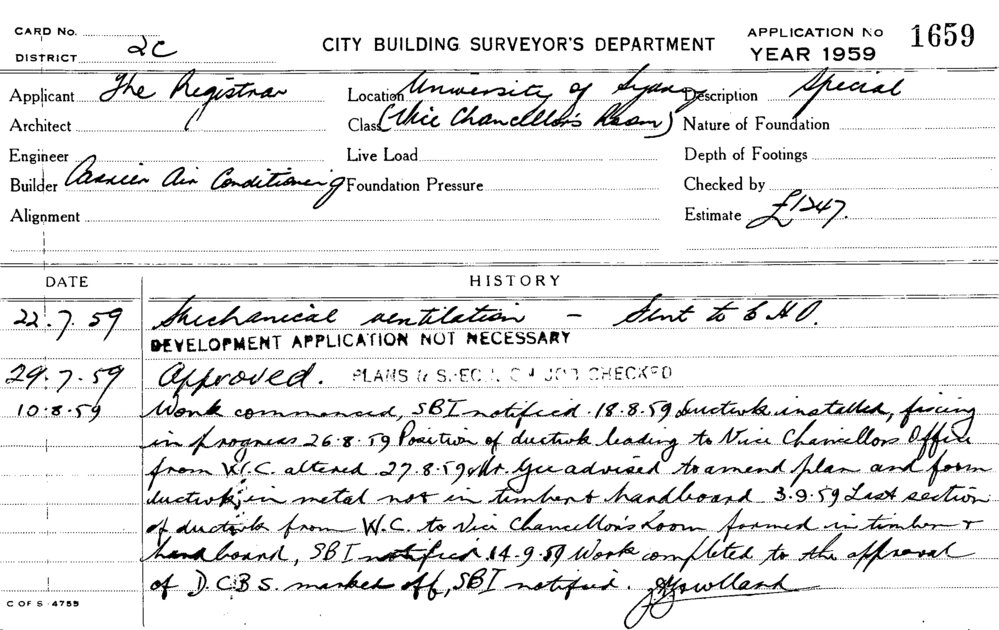 CARD No.
DISTRICT 2C
CITY BUILDING SURVEYOR'S DEPARTMENT
APPLICATION No 1659
YEAR 1959
Applicant The Registrar
Location University of Sydney
Description Special
Architect
Class (Vice Chancellor's Room)
Nature of Foundation
Engineer
Live Load
Depth of Footings
Builder Carrier Air Conditioning
Foundation Pressure
Checked by
Alignment
Estimate £1247.
DATE HISTORY
22.7.59 Mechanical ventilation – Sent to C.H.O.
DEVELOPMENT APPLICATION NOT NECESSARY
29.7.59 Approved. PLANS & SPEC. ON JOB CHECKED
10.8.59 Work commenced, SBI notified. 18.8.59 Ductwk installed, fixing
in progress 26.8.59 Position of ductwk leading to Vice Chancellors Office
from W.C. altered. 27.8.59 Mr. Gee advised to amend plan and form
ductwk in metal not in timber & hardboard 3.9.59 Last section
of ductwk from W.C. to Vice Chancellor's Room formed in timber &
hardboard, SBI notified. 14.9.59 Work completed to the approval
of D.C.B.S. marked off, SBI notified.
C OF S 4759